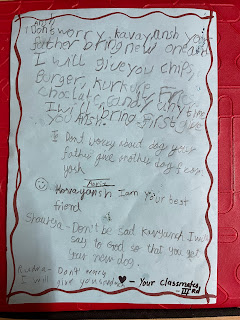 Ansh
Don't worry, kavayansh your
father bring new one and
I will give you chips,
Burger, kurkure,
choclate, candy any time
I will bring first give
you Ansh.
Dont worry about dog your
father give another dog
Kavya
Kavayansh I am Your best
friend
Shaurya - Don't be sad Kavyansh I will
say to God so that you get
your new dog.
Rudra - Dont worry
I will give you
- Your classmates
IIIrd